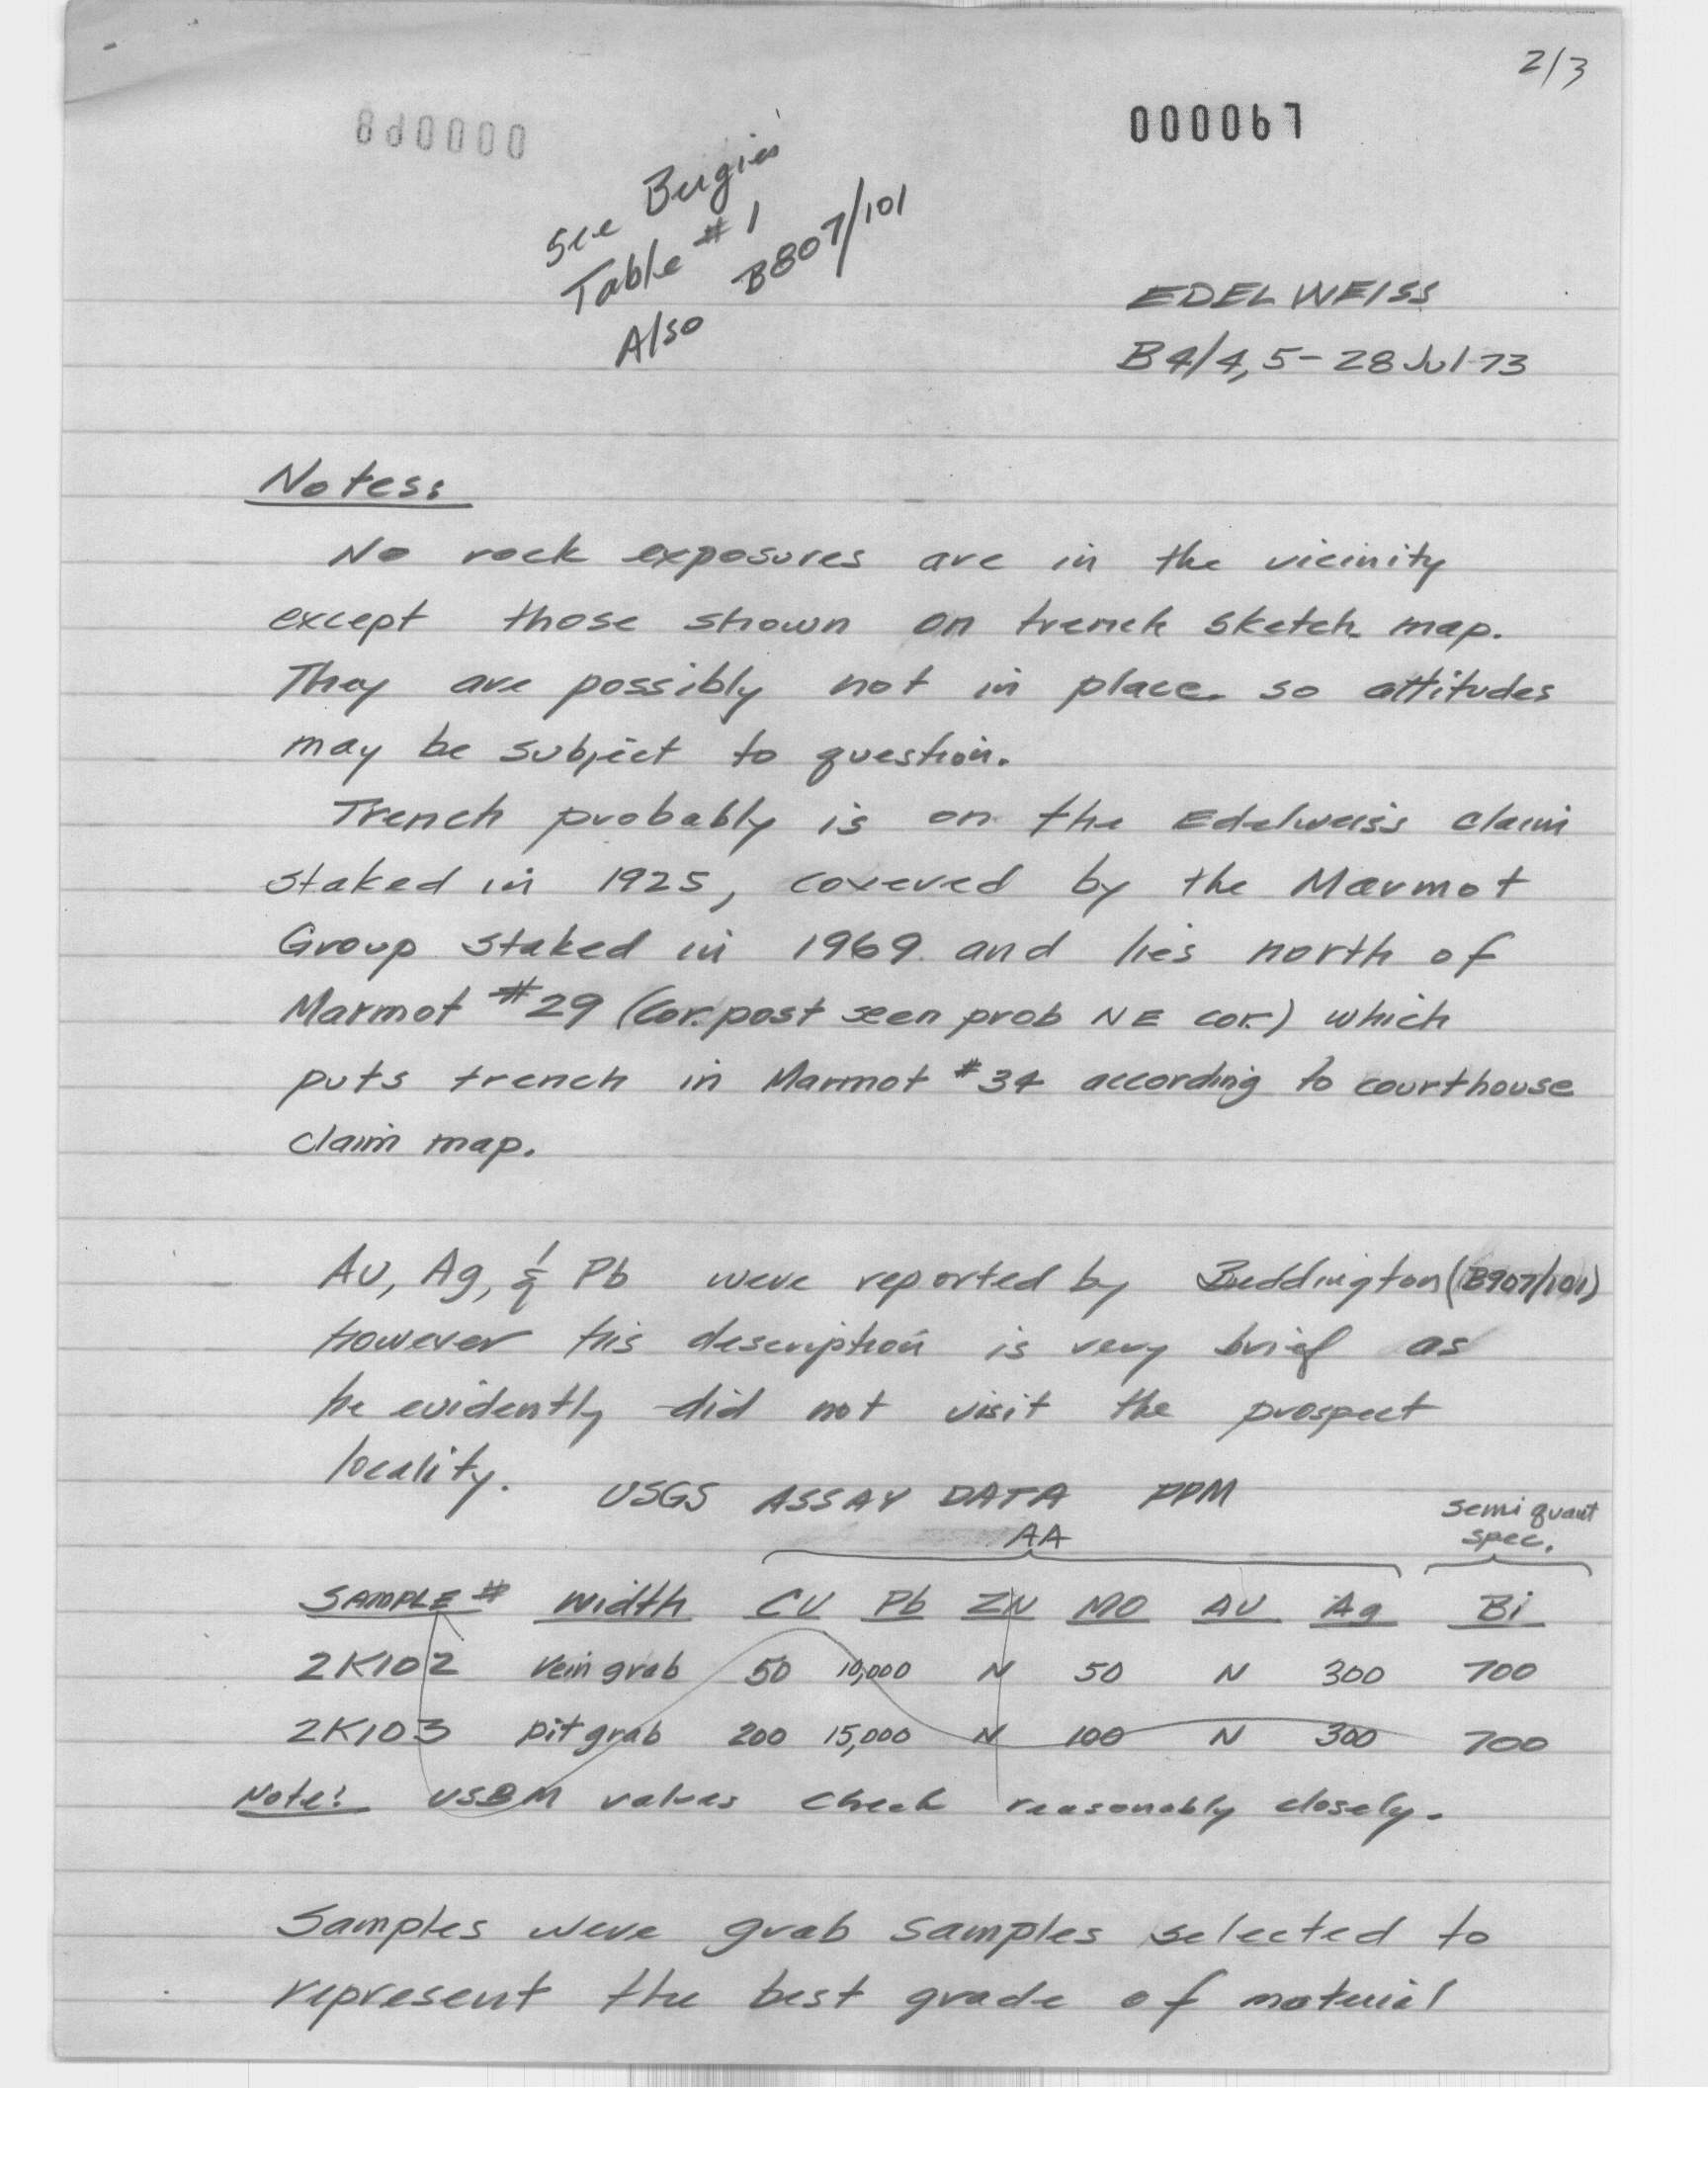 2/3
000067
See Bergin's
Table #1
Also B807/101
EDELWEISS
B4/4,5-28 Jul 73
Notes:
No rock exposures are in the vicinity
except those shown on trench sketch map.
They are possibly not in place so attitudes
may be subject to question.
Trench probably is on the Edelweiss claim
staked in 1925, covered by the Marmot
Group staked in 1969 and lies north of
Marmot #29 (Cor. post seen prob NE cor.) which
puts trench in Marmot #34 according to courthouse
claim map.
Au, Ag, & Pb were reported by Buddington (B907/101)
however his description is very brief as
he evidently did not visit the prospect
locality.
USGS ASSAY DATA PPM
AA semi quant spec.
SAMPLE # Width CU Pb ZN MO AU Ag Bi
2K102 Vein grab 50 10,000 N 50 N 300 700
2K103 pit grab 200 15,000 N 100 N 300 700
Note: USBM values check reasonably closely.
Samples were grab samples selected to
represent the best grade of material